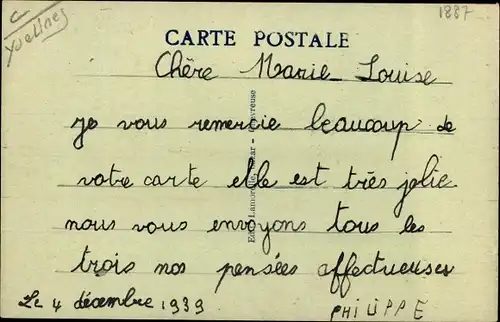 Yvelines
1887
CARTE POSTALE
Chère Marie-Louise
je vous remercie beaucoup de
votre carte elle est très jolie
nous vous envoyons tous les
trois nos pensées affectueuses
Le 4 décembre 1939
PHILIPPE